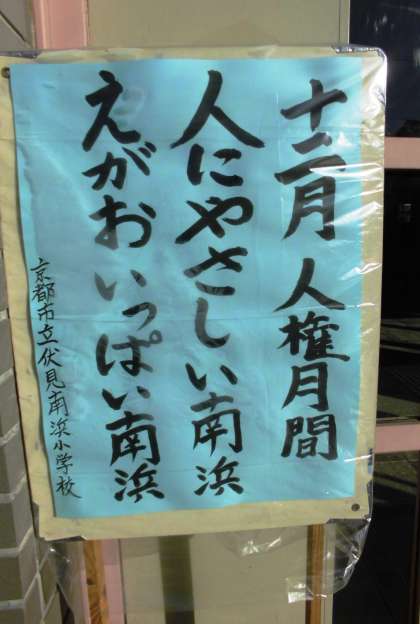 十二月 人権月間
人にやさしい南浜
えがおいっぱい南浜
京都市立伏見南浜小学校